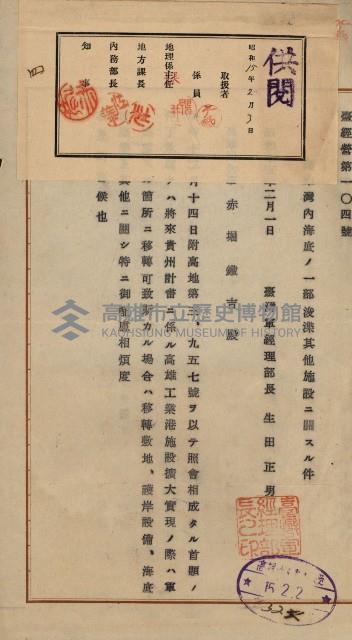 供閱
昭和15年2月3日
取扱者
係員
地理係主任
地方課長
內務部長
知事
四
臺經營第一〇四號
灣內海底ノ一部浚渫其他施設ニ關スル件
年二月一日
臺灣軍經理部長 生田正男
赤堀鐵吉殿
月十四日附高地第三九五七號ヲ以テ照會相成タル首題ノ
ハ將來貴州計畫ニ係ル高雄工業港施設擴大實現ノ際ハ軍
箇所ニ移轉可致斯カル場合ハ移轉敷地、護岸設備、海底
其他ニ關シ特ニ御配慮相煩度
候也
臺灣軍經理部長之印
15.2.2
高雄市立歷史博物館
KAOHSIUNG MUSEUM OF HISTORY